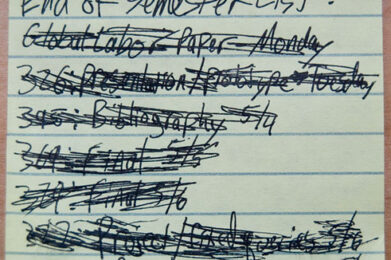 End of Semester List:
Global Labor Paper - Monday
326: Presentation/Prototype - Tuesday
395: Bibliography 5/9
369: Final 5/6
378: Final 5/6
Project / 5/6